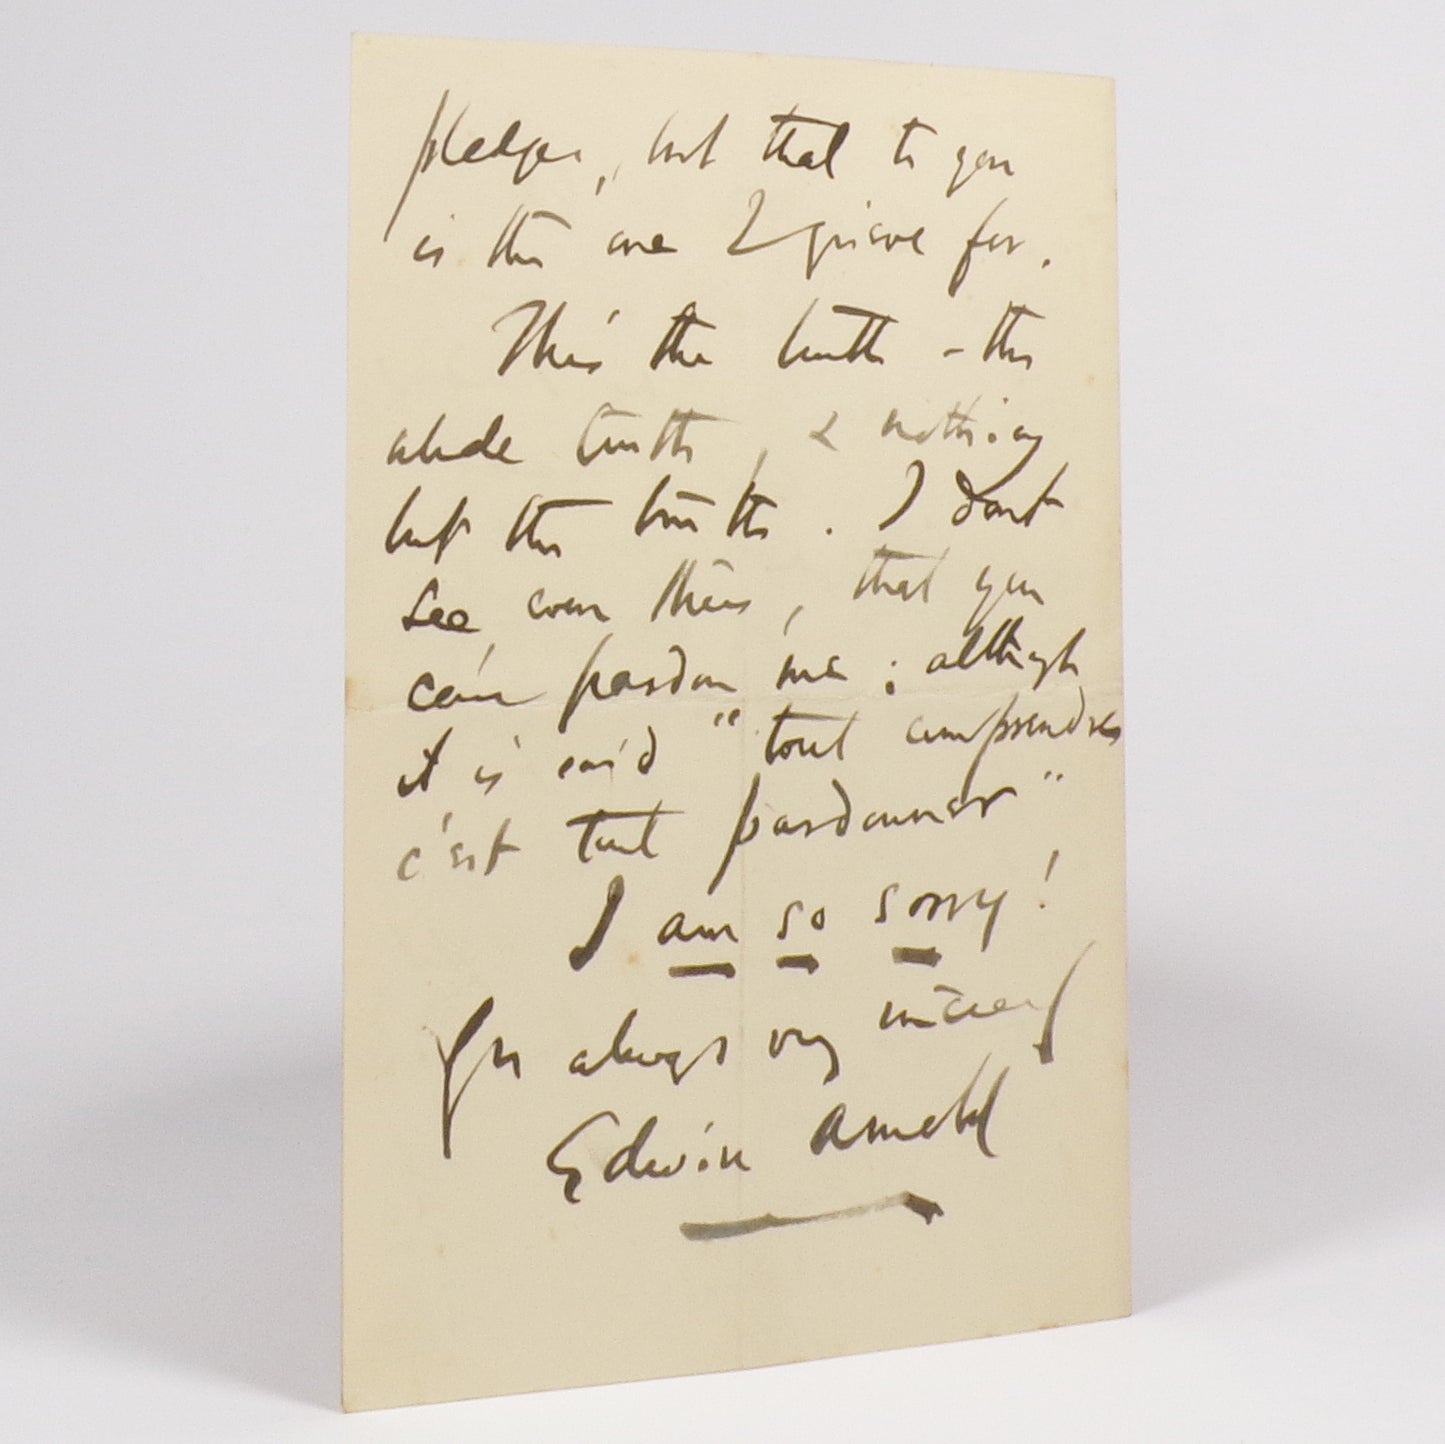 pledges, but that to you
is the one I grieve for.
This the truth – the
whole truth, & nothing
but the truth. I don't
see even then, that you
can pardon me; although
it is said "tout comprendre
c'est tout pardonner"
I am so sorry!
Yrs always very sincerely
Edwin Arnold